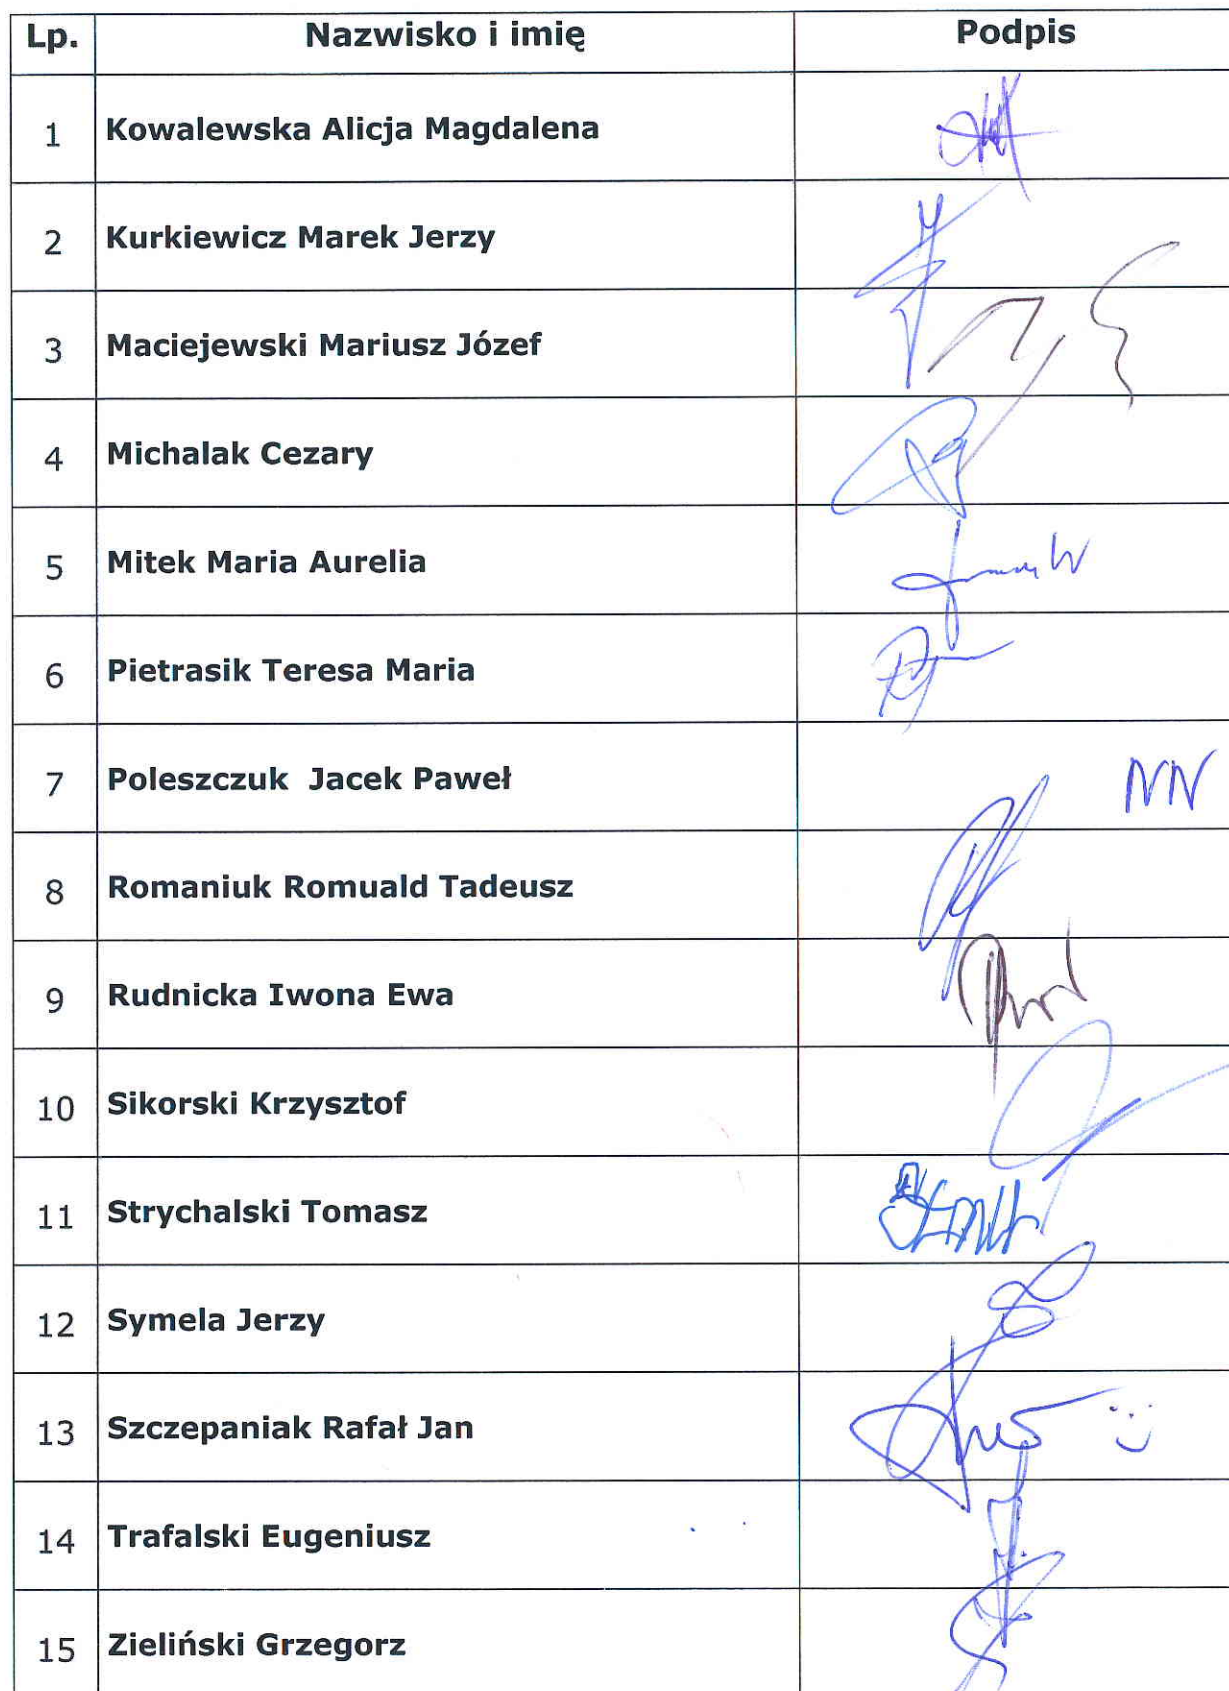 Lp. Nazwisko i imię Podpis
1 Kowalewska Alicja Magdalena
2 Kurkiewicz Marek Jerzy
3 Maciejewski Mariusz Józef
4 Michalak Cezary
5 Mitek Maria Aurelia
6 Pietrasik Teresa Maria
7 Poleszczuk Jacek Paweł NN
8 Romaniuk Romuald Tadeusz
9 Rudnicka Iwona Ewa
10 Sikorski Krzysztof
11 Strychalski Tomasz
12 Symela Jerzy
13 Szczepaniak Rafał Jan
14 Trafalski Eugeniusz
15 Zieliński Grzegorz